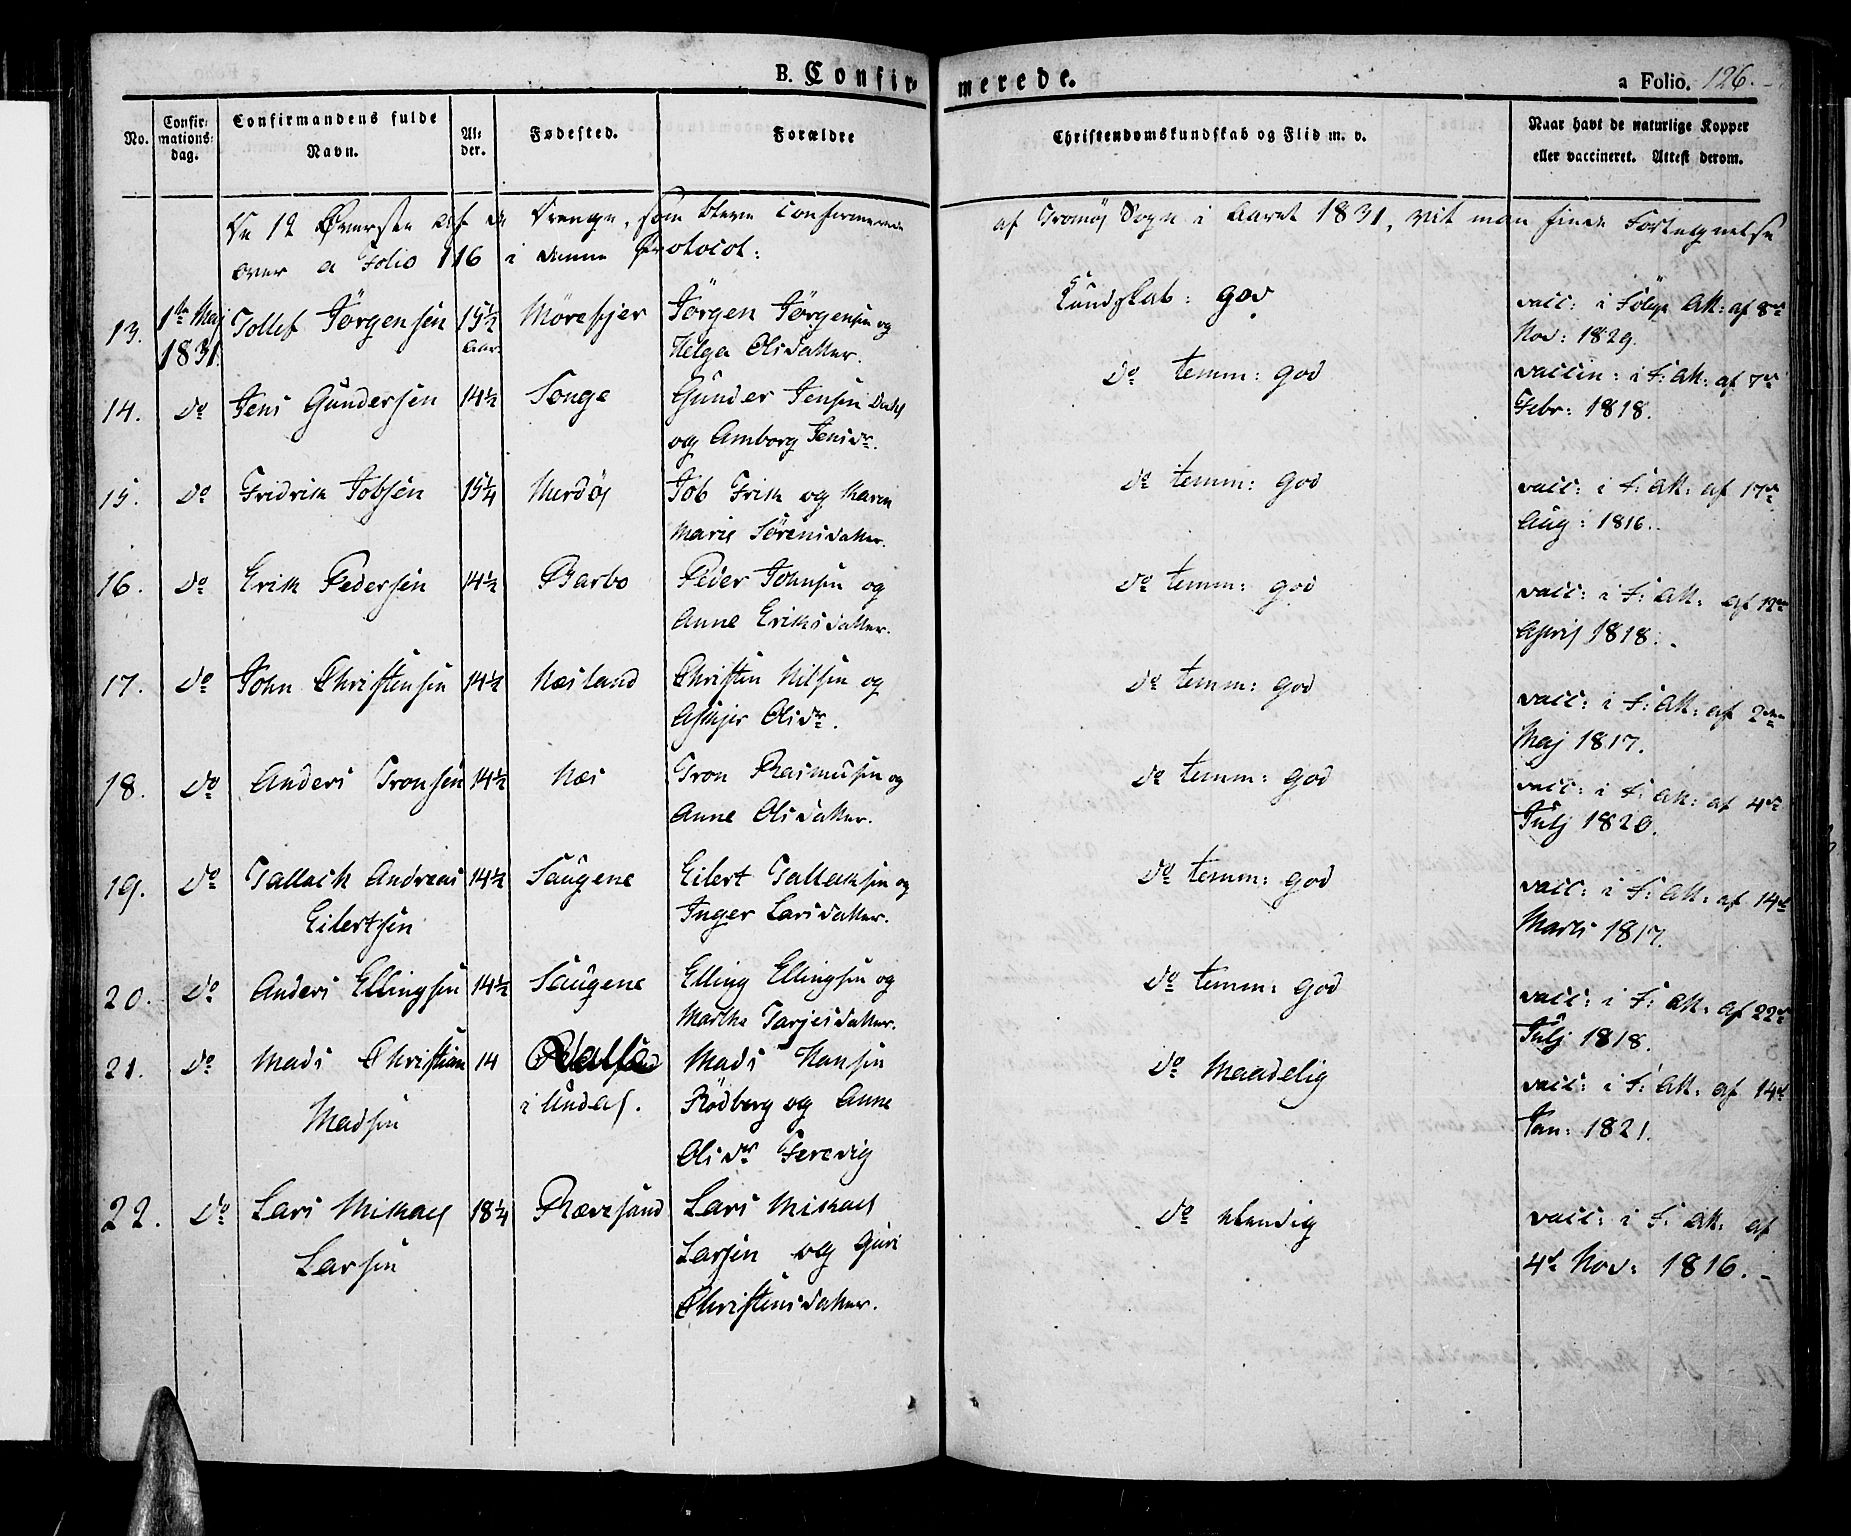 B. Confirmerede.
a Folio. 126.
No.
Confirmations-dag.
Confirmandens fulde Navn.
Alder.
Fødested.
Forældre
Christendomskundskab og Flid m. v.
Naar havt de naturlige Kopper eller vaccineret. Attest derom.
De 12 Øverste af de Drenge, som bleve confirmerede af Tromøj Sogn i Aaret 1831, vil man finde Fortegnelse
over a Folio 116 i denne Protocol:
13. 1ste Maj Tollef Jörgensen 15½ Morefjer Jörgen Jörgensen og Kundskab: god vacc: i Fölge Att: af 8de
1831. Aar. Helga Olsdatter. Nov: 1829.
14. Do Jens Gundersen 14½ Songe Gunder Jensen Do temm: god vaccin: i F: Att: af 7de
og Amborg Jensdr. Febr: 1818.
15. Do Fridrik Jobsen 15¼ Merdöj Job Frik og Maren Do temm: god vacc: i F: Att: af 17de
Marie Sörensdatter. Aug: 1816.
16. Do Erik Pedersen 14½ Barbo Peder Johnsen og Do temm: god vacc: i F: Att: af 12te
Anne Eriksdatter. April 1818.
17. Do John Christensen 14½ Næsland Christen Nilsen og Do temm: god vacc: i F: Att: af 2den
Olsdr. Maj 1817.
18. Do Anders Tronsen 14½ Næs Tron Rasmusen og Do temm: god vacc: i F: Att: af 4de
Anne Olsdatter. Julj 1820.
19. Do Tallack Andreas 14½ Saugene Eilert Tallaksen og Do temm: god vacc: i F: Att: af 14de
Eilertsen Inger Larsdatter. Marts 1817.
20. Do Anders Ellingsen 14½ Saugene Elling Ellingsen og Do temm: god vacc: i F: Att: af 22de
Marthe Tarjesdatter. Julj 1818.
21. Do Mads Christian 14 Mads Hansen Do Maadelig vacc: i F: Att: af 14de
Madsen i Rödberg og Anne Jan: 1821.
Olsdr Fervig
22. Do Lars Mikael 18¼ Rævesand Lars Mikael Do elendig vacc: i F: Att: af
Larsen Larsen og Guri 4de Nov: 1816.
Christensdatter.